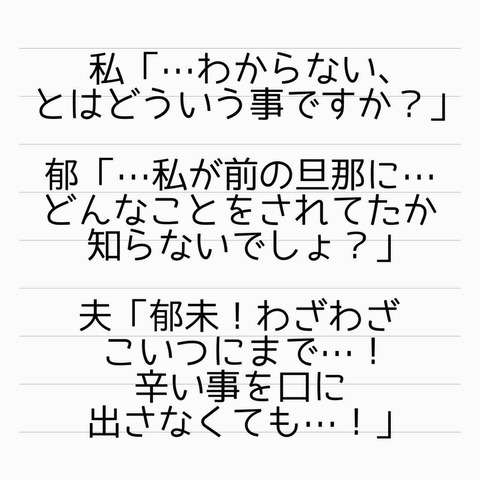 私「…わからない、
とはどういう事ですか？」
郁「…私が前の旦那に…
どんなことをされてたか
知らないでしょ？」
夫「郁未！わざわざ
こいつにまで…！
辛い事を口に
出さなくても…！」